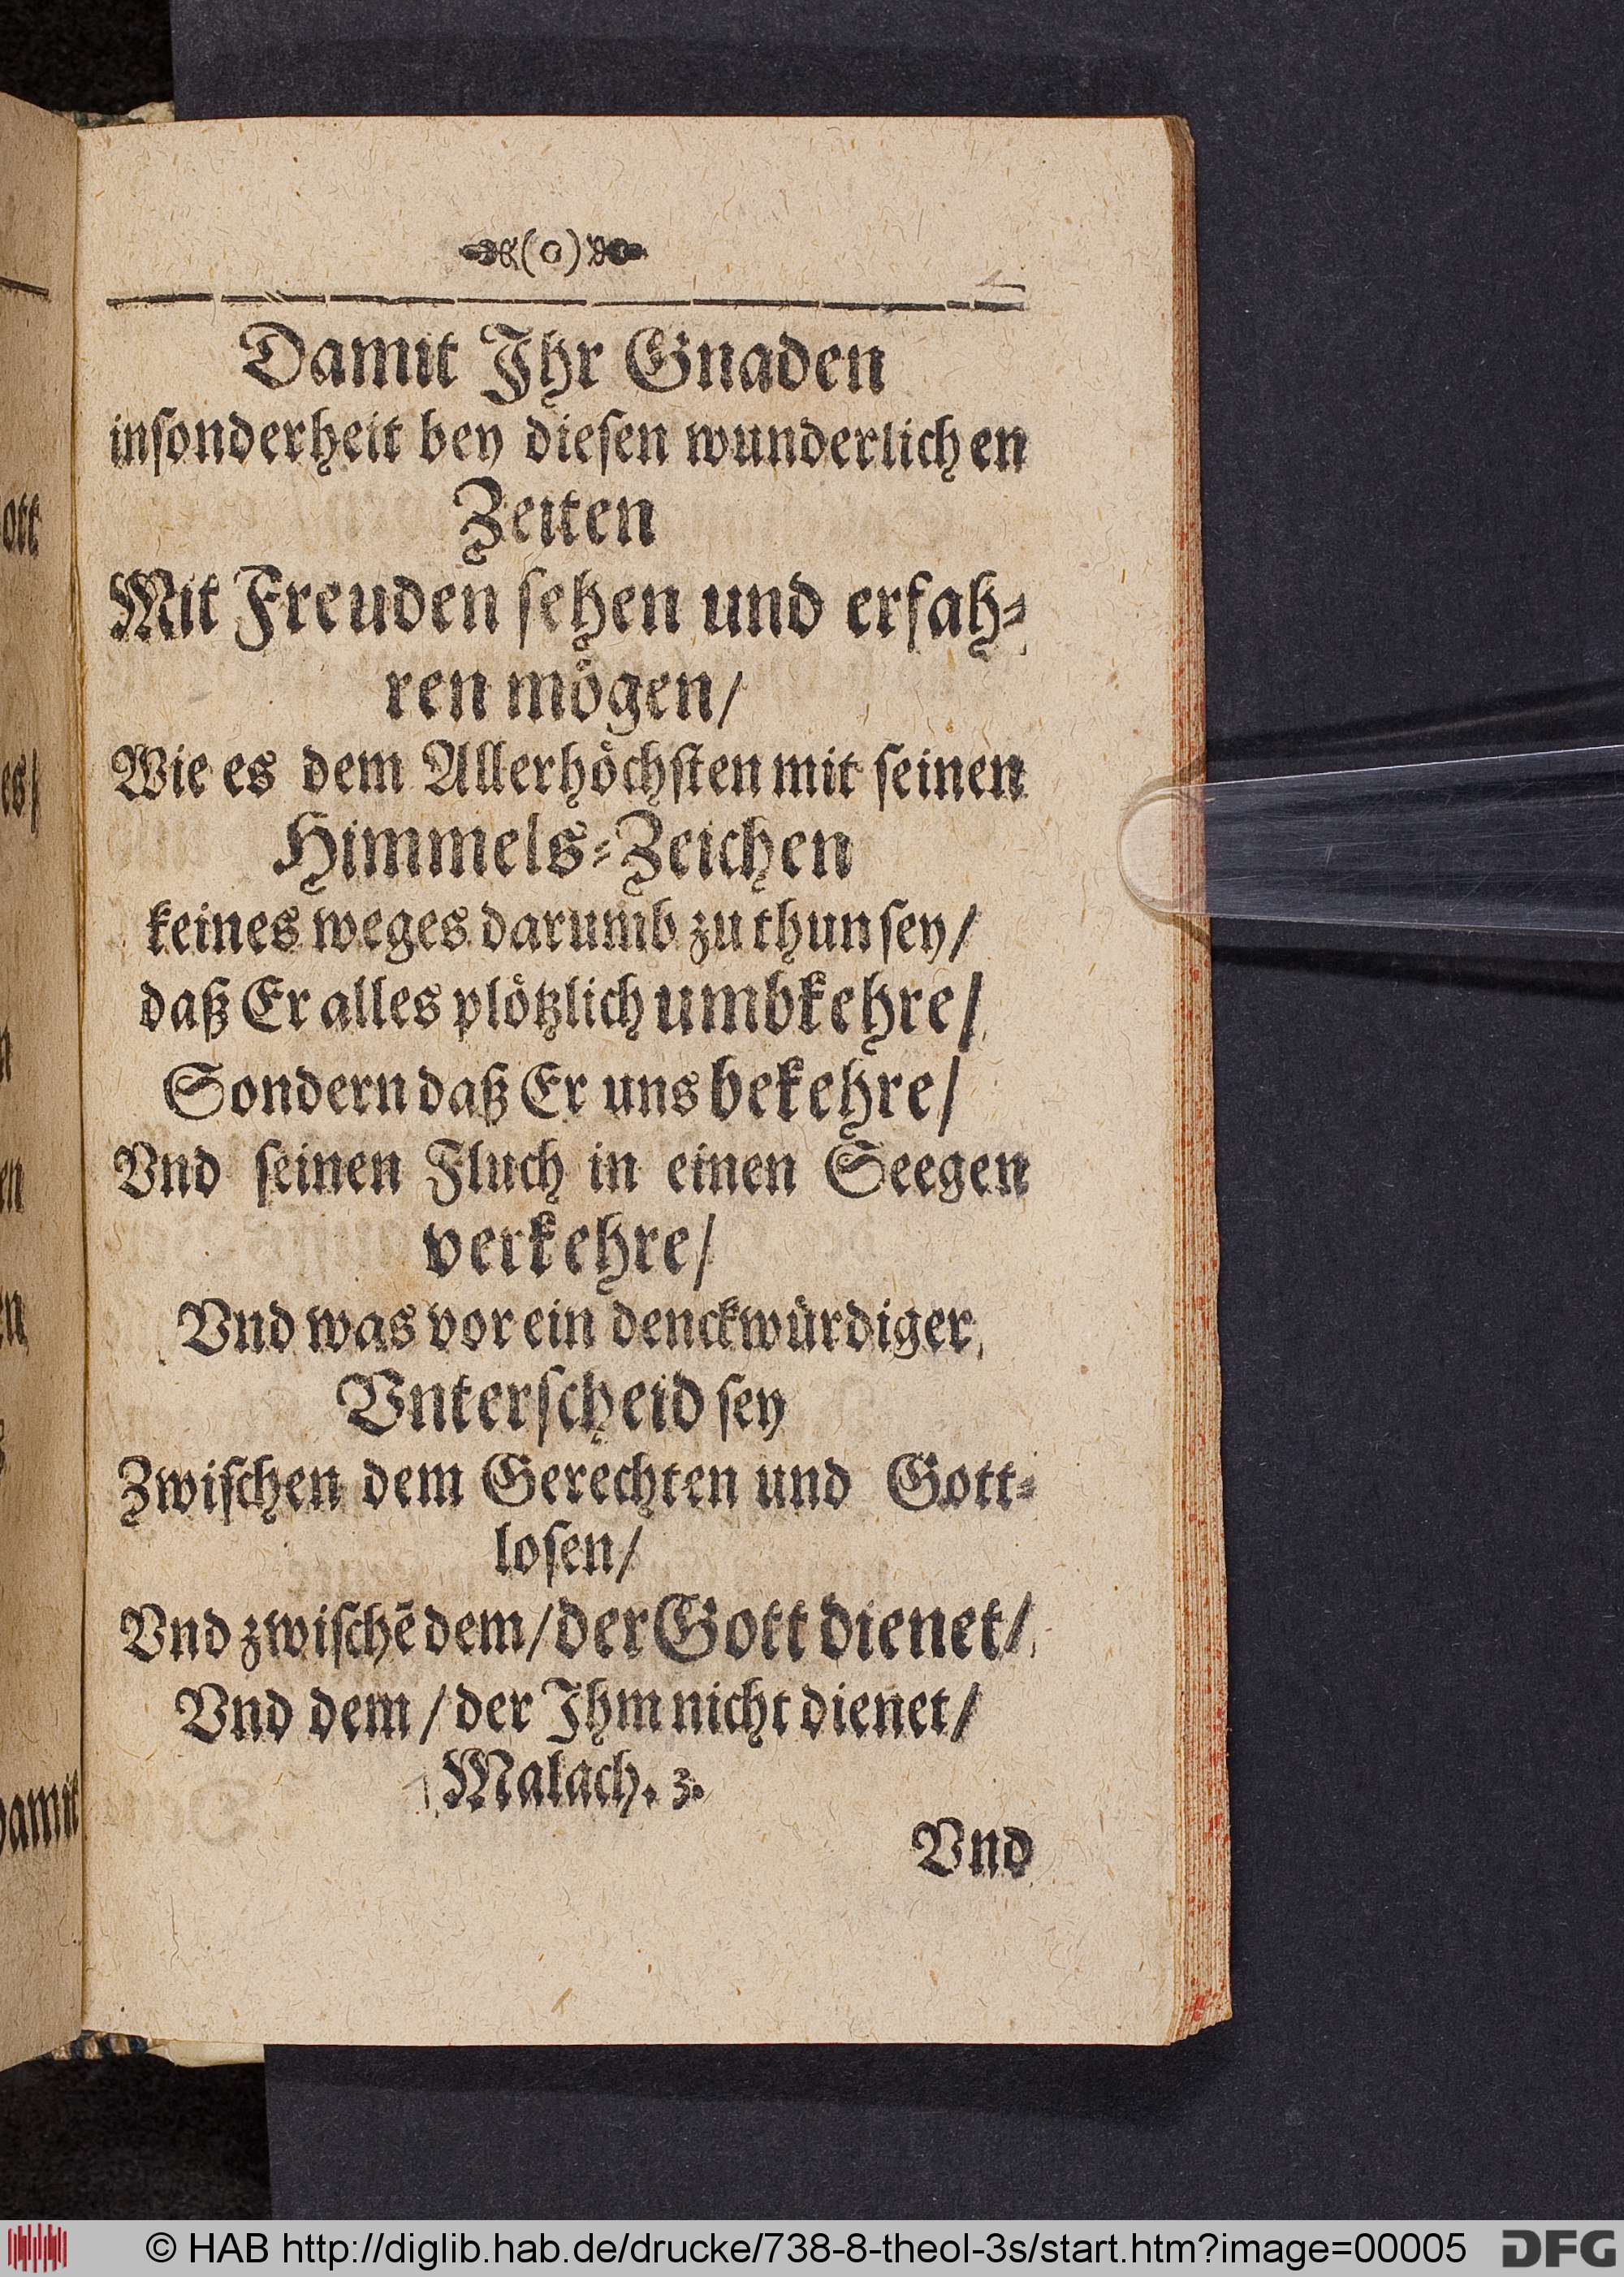 (o)
Damit Ihr Gnaden
inſonderheit bey dieſen wunderlichen
Zeiten
Mit Freuden ſehen und erfah⸗
ren moͤgen/
Wie es dem Allerhoͤchſten mit ſeinen
Himmels⸗Zeichen
keines weges darumb zu thun ſey/
daß Er alles ploͤtzlich umbkehre/
Sondern daß Er uns bekehre/
Vnd ſeinen Fluch in einen Seegen
verkehre/
Vnd was vor ein denckwuͤrdiger
Vnterſcheid ſey
Zwiſchen dem Gerechten und Gott⸗
loſen/
Vnd zwiſchē dem/ der Gott dienet/
Vnd dem/ der Ihm nicht dienet/
Malach. 3.
Vnd
© HAB http://diglib.hab.de/drucke/738-8-theol-3s/start.htm?image=00005
DFG